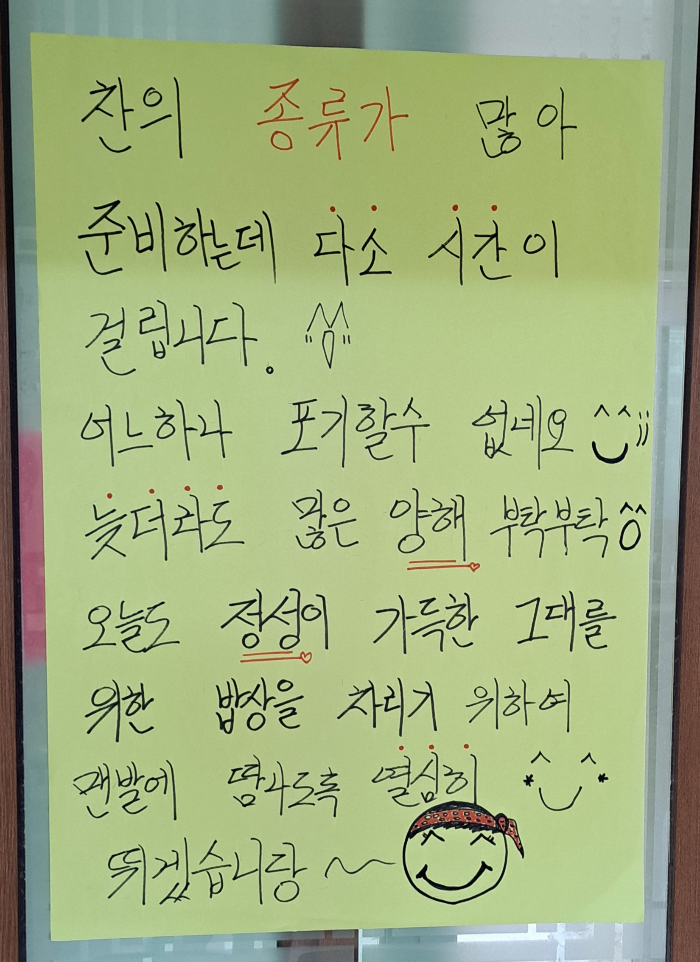 찬의 종류가 많아
준비하는데 다소 시간이
걸립니다.
어느하나 포기할수 없네요 ^^;;
늦더라도 많은 양해 부탁부탁
오늘도 정성이 가득한 그대를
위한 밥상을 차리기 위하여
맨발에 땀나도록 열심히
뛰겠습니당~